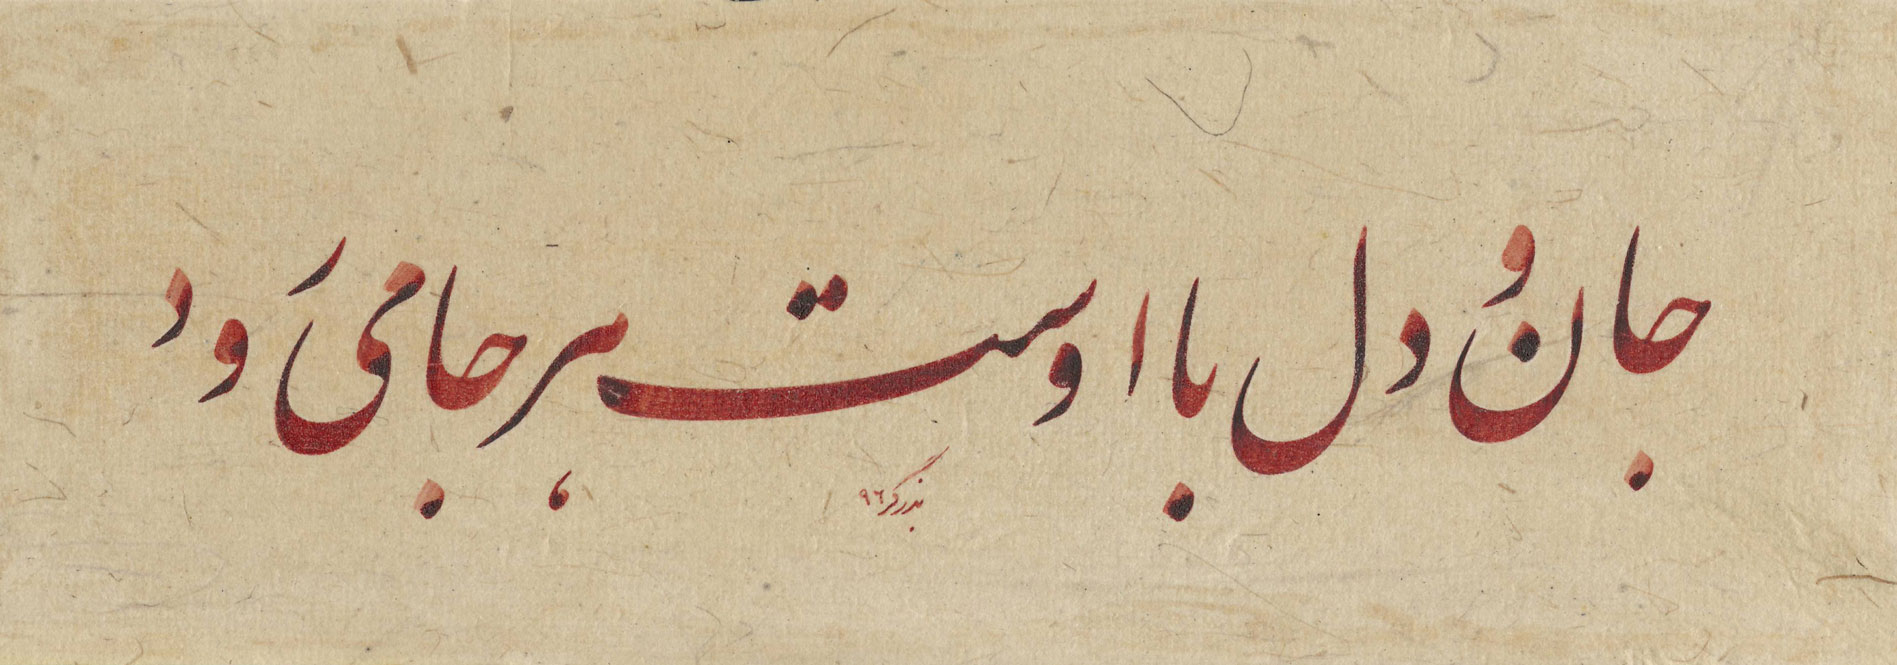 جان و دل با اوست هر جا می رود
بذرگر ۹۶